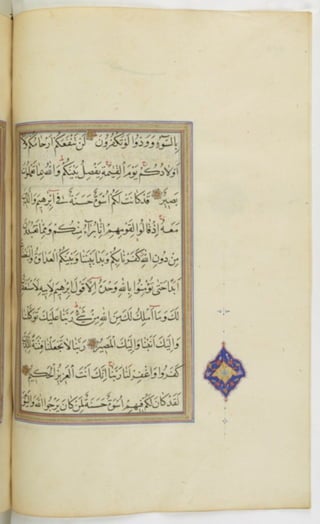 بِالسُّوءِ وَوَدُّوا لَوْ تَكْفُرُونَ لَنْ تَنْفَعَكُمْ أَرْحَامُكُمْ وَلَا
أَوْلَادُكُمْ يَوْمَ الْقِيٰمَةِ يَفْصِلُ بَيْنَكُمْ وَاللَّهُ بِمَا تَعْمَلُونَ
بَصِيرٌ قَدْ كَانَتْ لَكُمْ أُسْوَةٌ حَسَنَةٌ فِي إِبْرٰهِيمَ وَالَّذِينَ
مَعَهُ إِذْ قَالُوا لِقَوْمِهِمْ إِنَّا بُرَآءُ مِنْكُمْ وَمِمَّا تَعْبُدُونَ
مِنْ دُونِ اللَّهِ كَفَرْنَا بِكُمْ وَبَدَا بَيْنَنَا وَبَيْنَكُمُ الْعَدَاوَةُ وَالْبَغْضَاءُ
أَبَدًا حَتَّى تُؤْمِنُوا بِاللَّهِ وَحْدَهُ إِلَّا قَوْلَ إِبْرٰهِيمَ لِأَبِيهِ لَأَسْتَغْفِرَنَّ
لَكَ وَمَا أَمْلِكُ لَكَ مِنَ اللَّهِ مِنْ شَيْءٍ رَبَّنَا عَلَيْكَ تَوَكَّلْنَا
وَإِلَيْكَ أَنَبْنَا وَإِلَيْكَ الْمَصِيرُ رَبَّنَا لَا تَجْعَلْنَا فِتْنَةً لِلَّذِينَ
كَفَرُوا وَاغْفِرْ لَنَا رَبَّنَا إِنَّكَ أَنْتَ الْعَزِيزُ الْحَكِيمُ
لَقَدْ كَانَ لَكُمْ فِيهِمْ أُسْوَةٌ حَسَنَةٌ لِمَنْ كَانَ يَرْجُوا اللَّهَ وَالْيَوْمَ